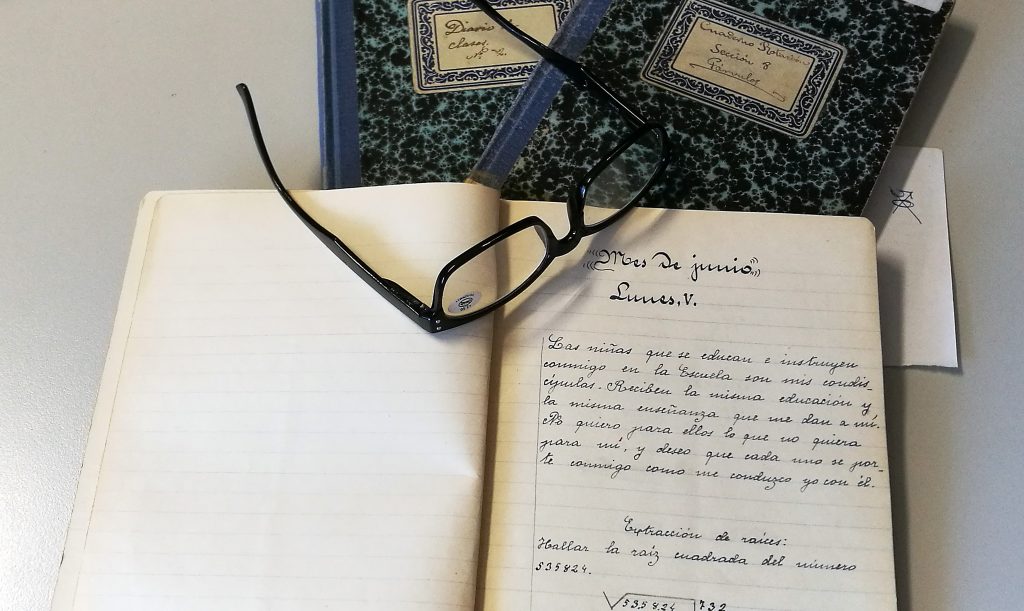 Diario de
clases.
Nº 2.
Cuaderno Rotación
Sección 8
Párvulos
"Mes De junio"
Lunes, V.
Las niñas que se educan e instruyen
conmigo en la Escuela son mis condis-
cípulas. Reciben la misma educación y
la misma enseñanza que me dan a mí.
No quiero para ellos lo que no quiera
para mí, y deseo que cada uno se por-
te conmigo como me conduzco yo con él.
Extracción de raíces:
Hallar la raíz cuadrada del número
535824.
√535824 732